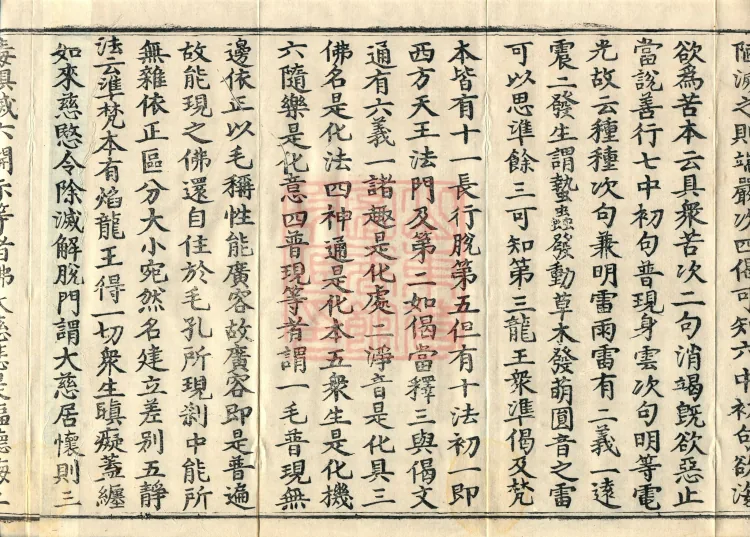 陋滅之則端嚴次四偈可知六中初句欲海
欲為苦本云具衆苦次二句消竭旣欲惡止
當說善行七中初句普現身雲次句明等電
光故云種種次句兼明雷雨雷有二義一遠
震二發生謂蟄蟲發動草木發萌圓音之雷
可以思準餘三可知第三龍王衆準偈及梵
本皆有十一長行脫第五但有十法初一即
西方天王法門及第二如偈當釋三與偈文
通有六義一諸趣是化處二淨音是化具三
佛名是化法四神通是化本五衆生是化機
六隨樂是化意四普現等者謂一毛普現無
邊依正以毛稱性能廣容故廣容即是普遍
故能現之佛還自住於毛孔所現剎中能所
無雜依正區分大小宛然名建立差別五靜
法云準梵本有焰龍王得一切衆生瞋癡蓋纏
如來慈愍令除滅解脫門謂大慈居懷則三
毒俱滅六開示等者佛大慈悲是福德海上